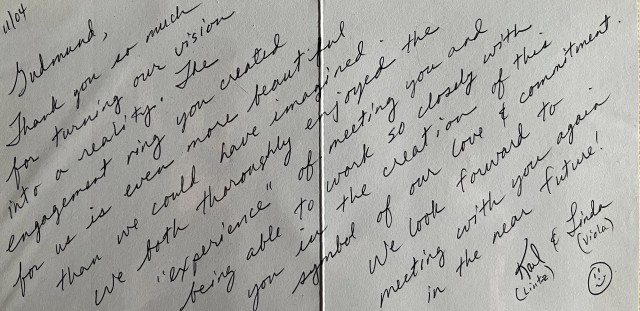 11/04
Gudmund,
Thank you so much
for turning our vision
into a reality. The
engagement ring you created
for us is even more beautiful
than we could have imagined.
We both thoroughly enjoyed the
"experience" of meeting you and
being able to work so closely with
you in the creation of this
symbol of our love & commitment.
We look forward to
meeting with you again
in the near future!
Karl & Linda
(Lintz) (Viola)